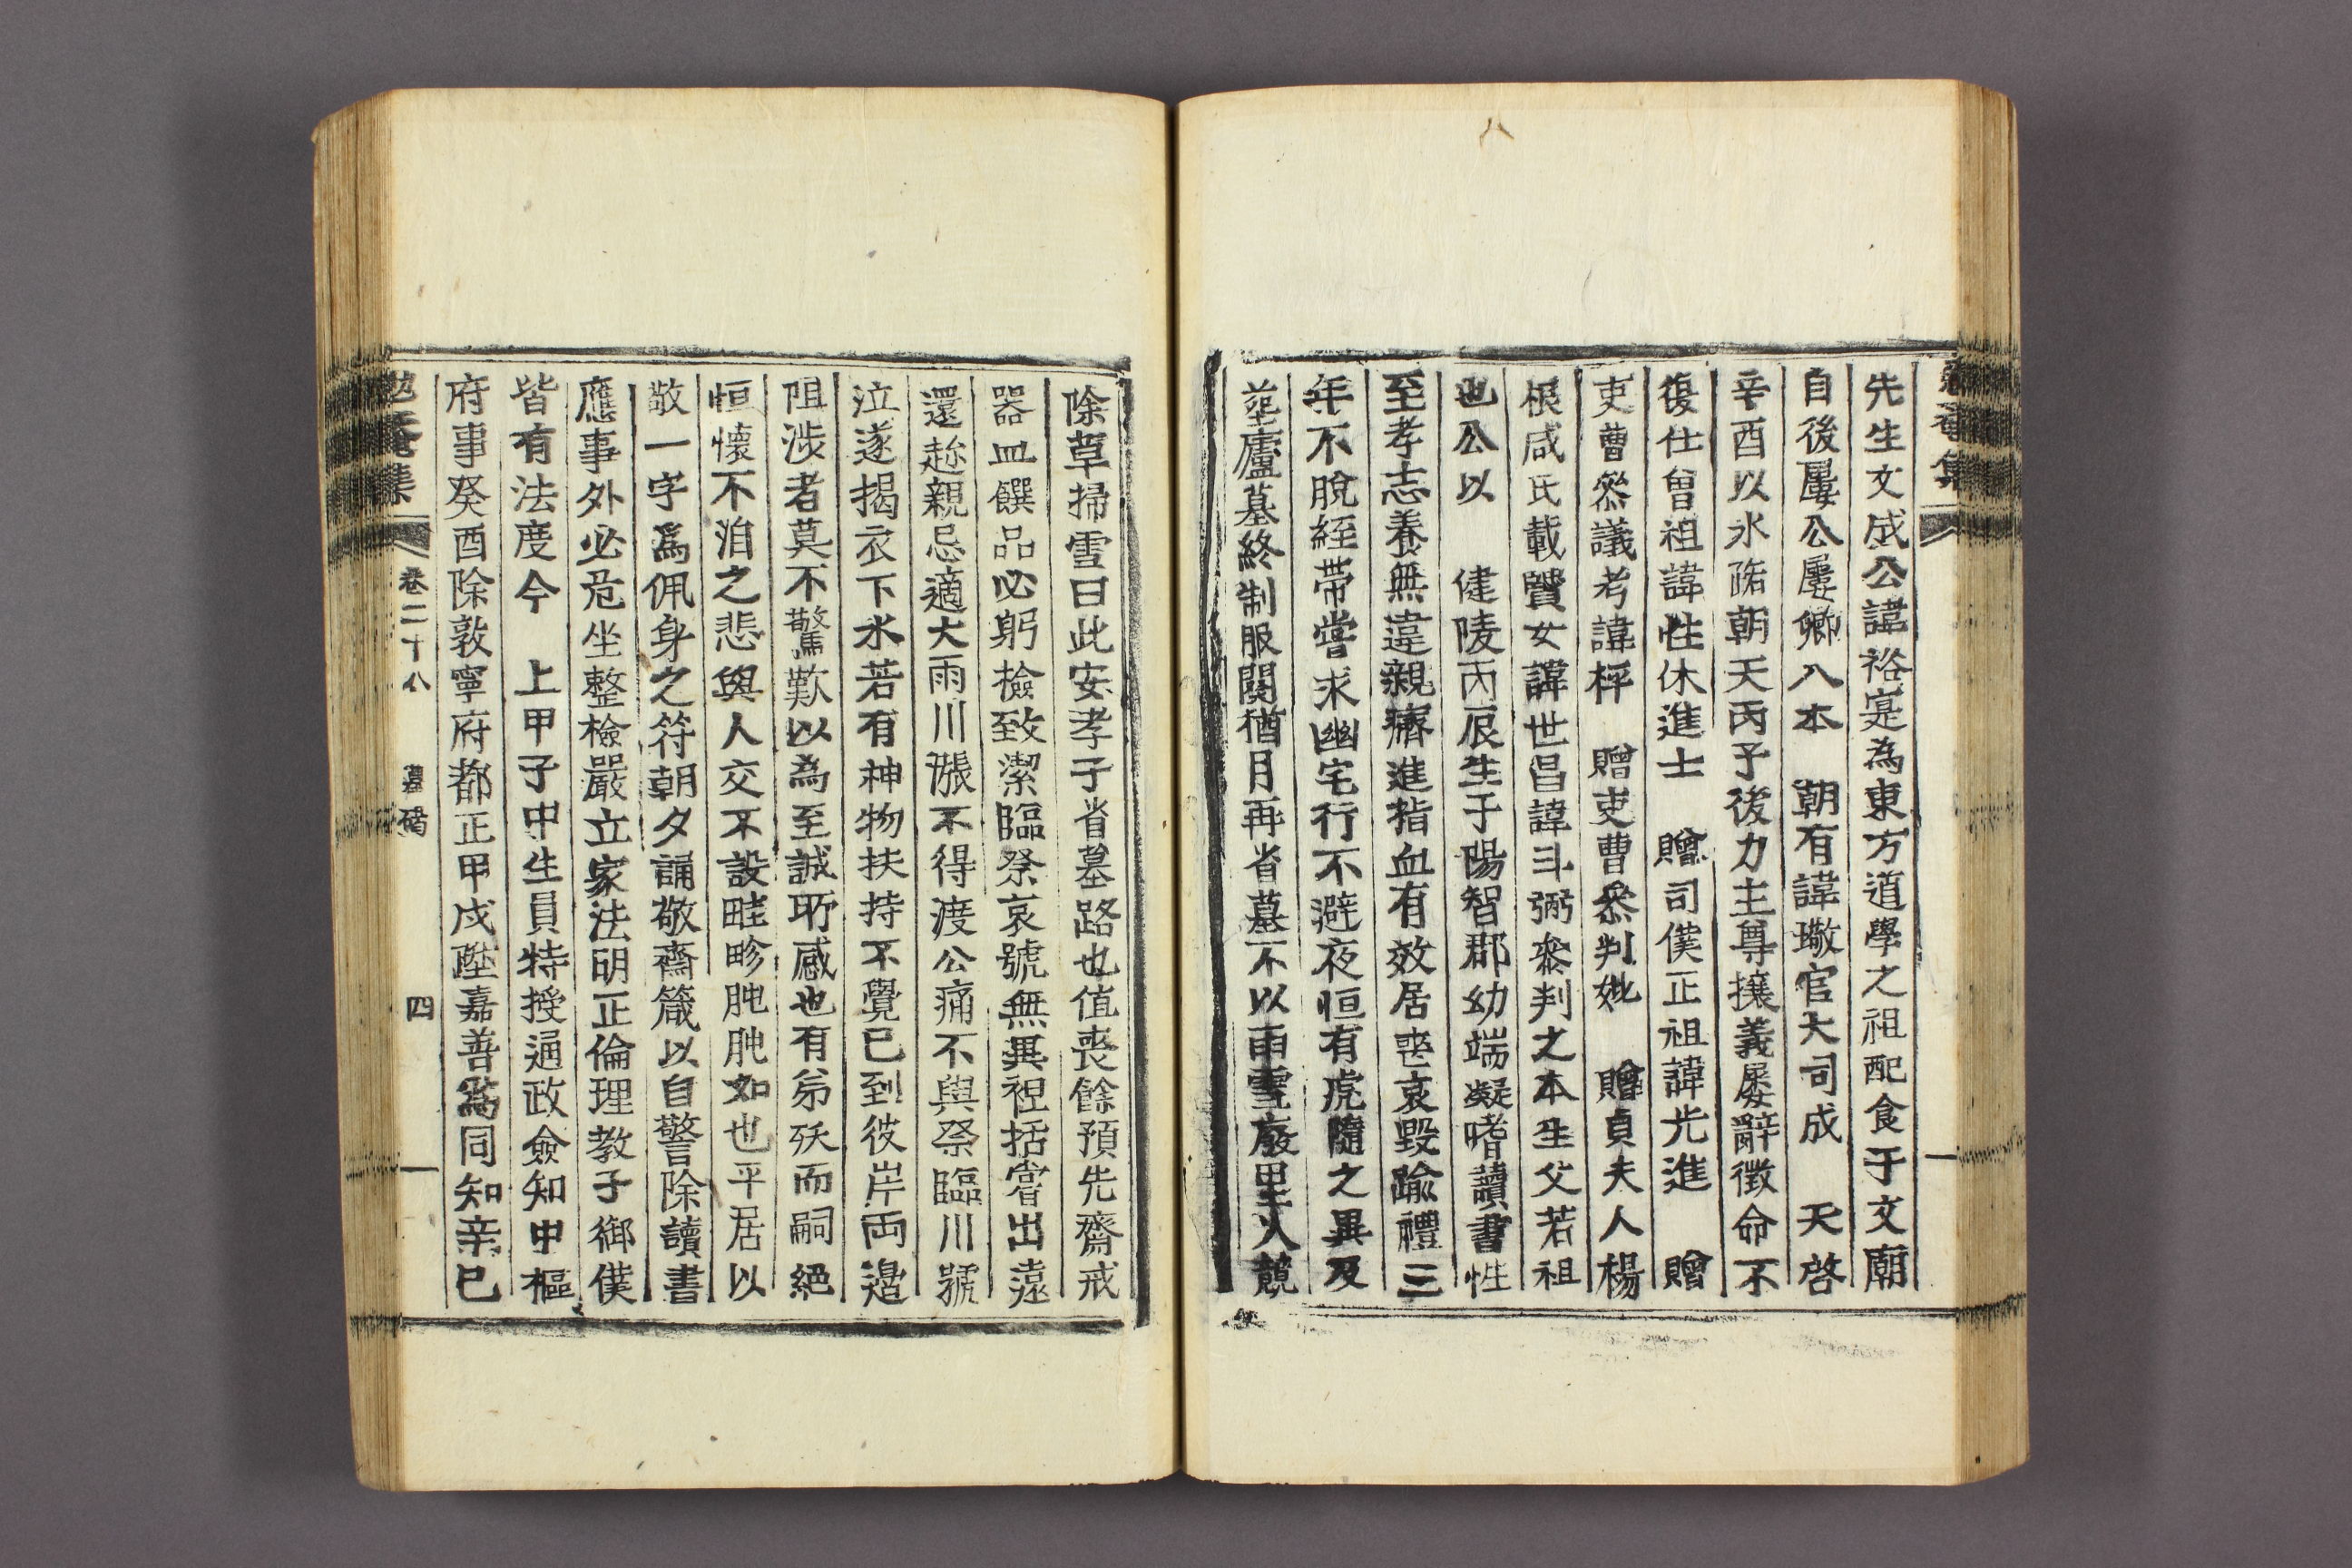 勉菴集
先生文成公諱裕寔為東方道學之祖配食于文廟
自後屢公屢卿入本 朝有諱璥官大司成 天啓
辛酉以水路朝天丙子後力主尊攘義屢辭徵命不
復仕曾祖諱性休進士 贈司僕正祖諱光進 贈
吏曹叅議考諱枰 贈吏曹叅判妣 贈貞夫人楊
根咸氏載贇女諱世昌諱斗弼叅判之本生父若祖
也公以 健陵丙辰生于陽智郡幼端凝嗜讀書性
至孝志養無違親癠進指血有效居喪哀毀踰禮三
年不脫絰帶嘗求幽宅行不避夜恒有虎隨之異及
葬廬墓終制服闋猶月再省墓不以雨雪廢里人競
除草掃雪曰此安孝子省墓路也值喪餘預先齋戒
器皿饌品必躬檢致潔臨祭哀號無異袒括嘗出遠
還趂親忌適大雨川漲不得渡公痛不與祭臨川號
泣遂揭衣下水若有神物扶持不覺已到彼岸両邉
阻涉者莫不驚歎以為至誠所感也有弟殀而嗣絕
恒懷不洎之悲與人交不設畦畛肫肫如也平居以
敬一字爲佩身之符朝夕誦敬齋箴以自警除讀書
應事外必危坐整檢嚴立家法明正倫理敎子御僕
皆有法度今 上甲子中生員特授通政僉知中樞
府事癸酉除敦寧府都正甲戌陞嘉善爲同知辛巳
勉菴集 卷二十八 墓碣 四